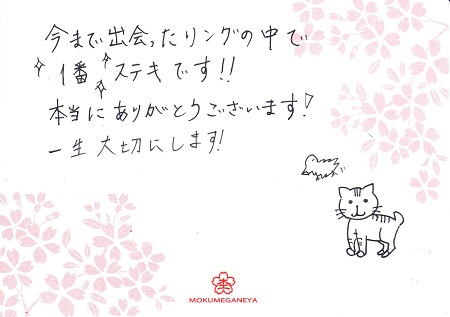 今まで出会ったリングの中で
1番ステキです!!
本当にありがとうございます!
一生大切にします!
MOKUMEGANEYA